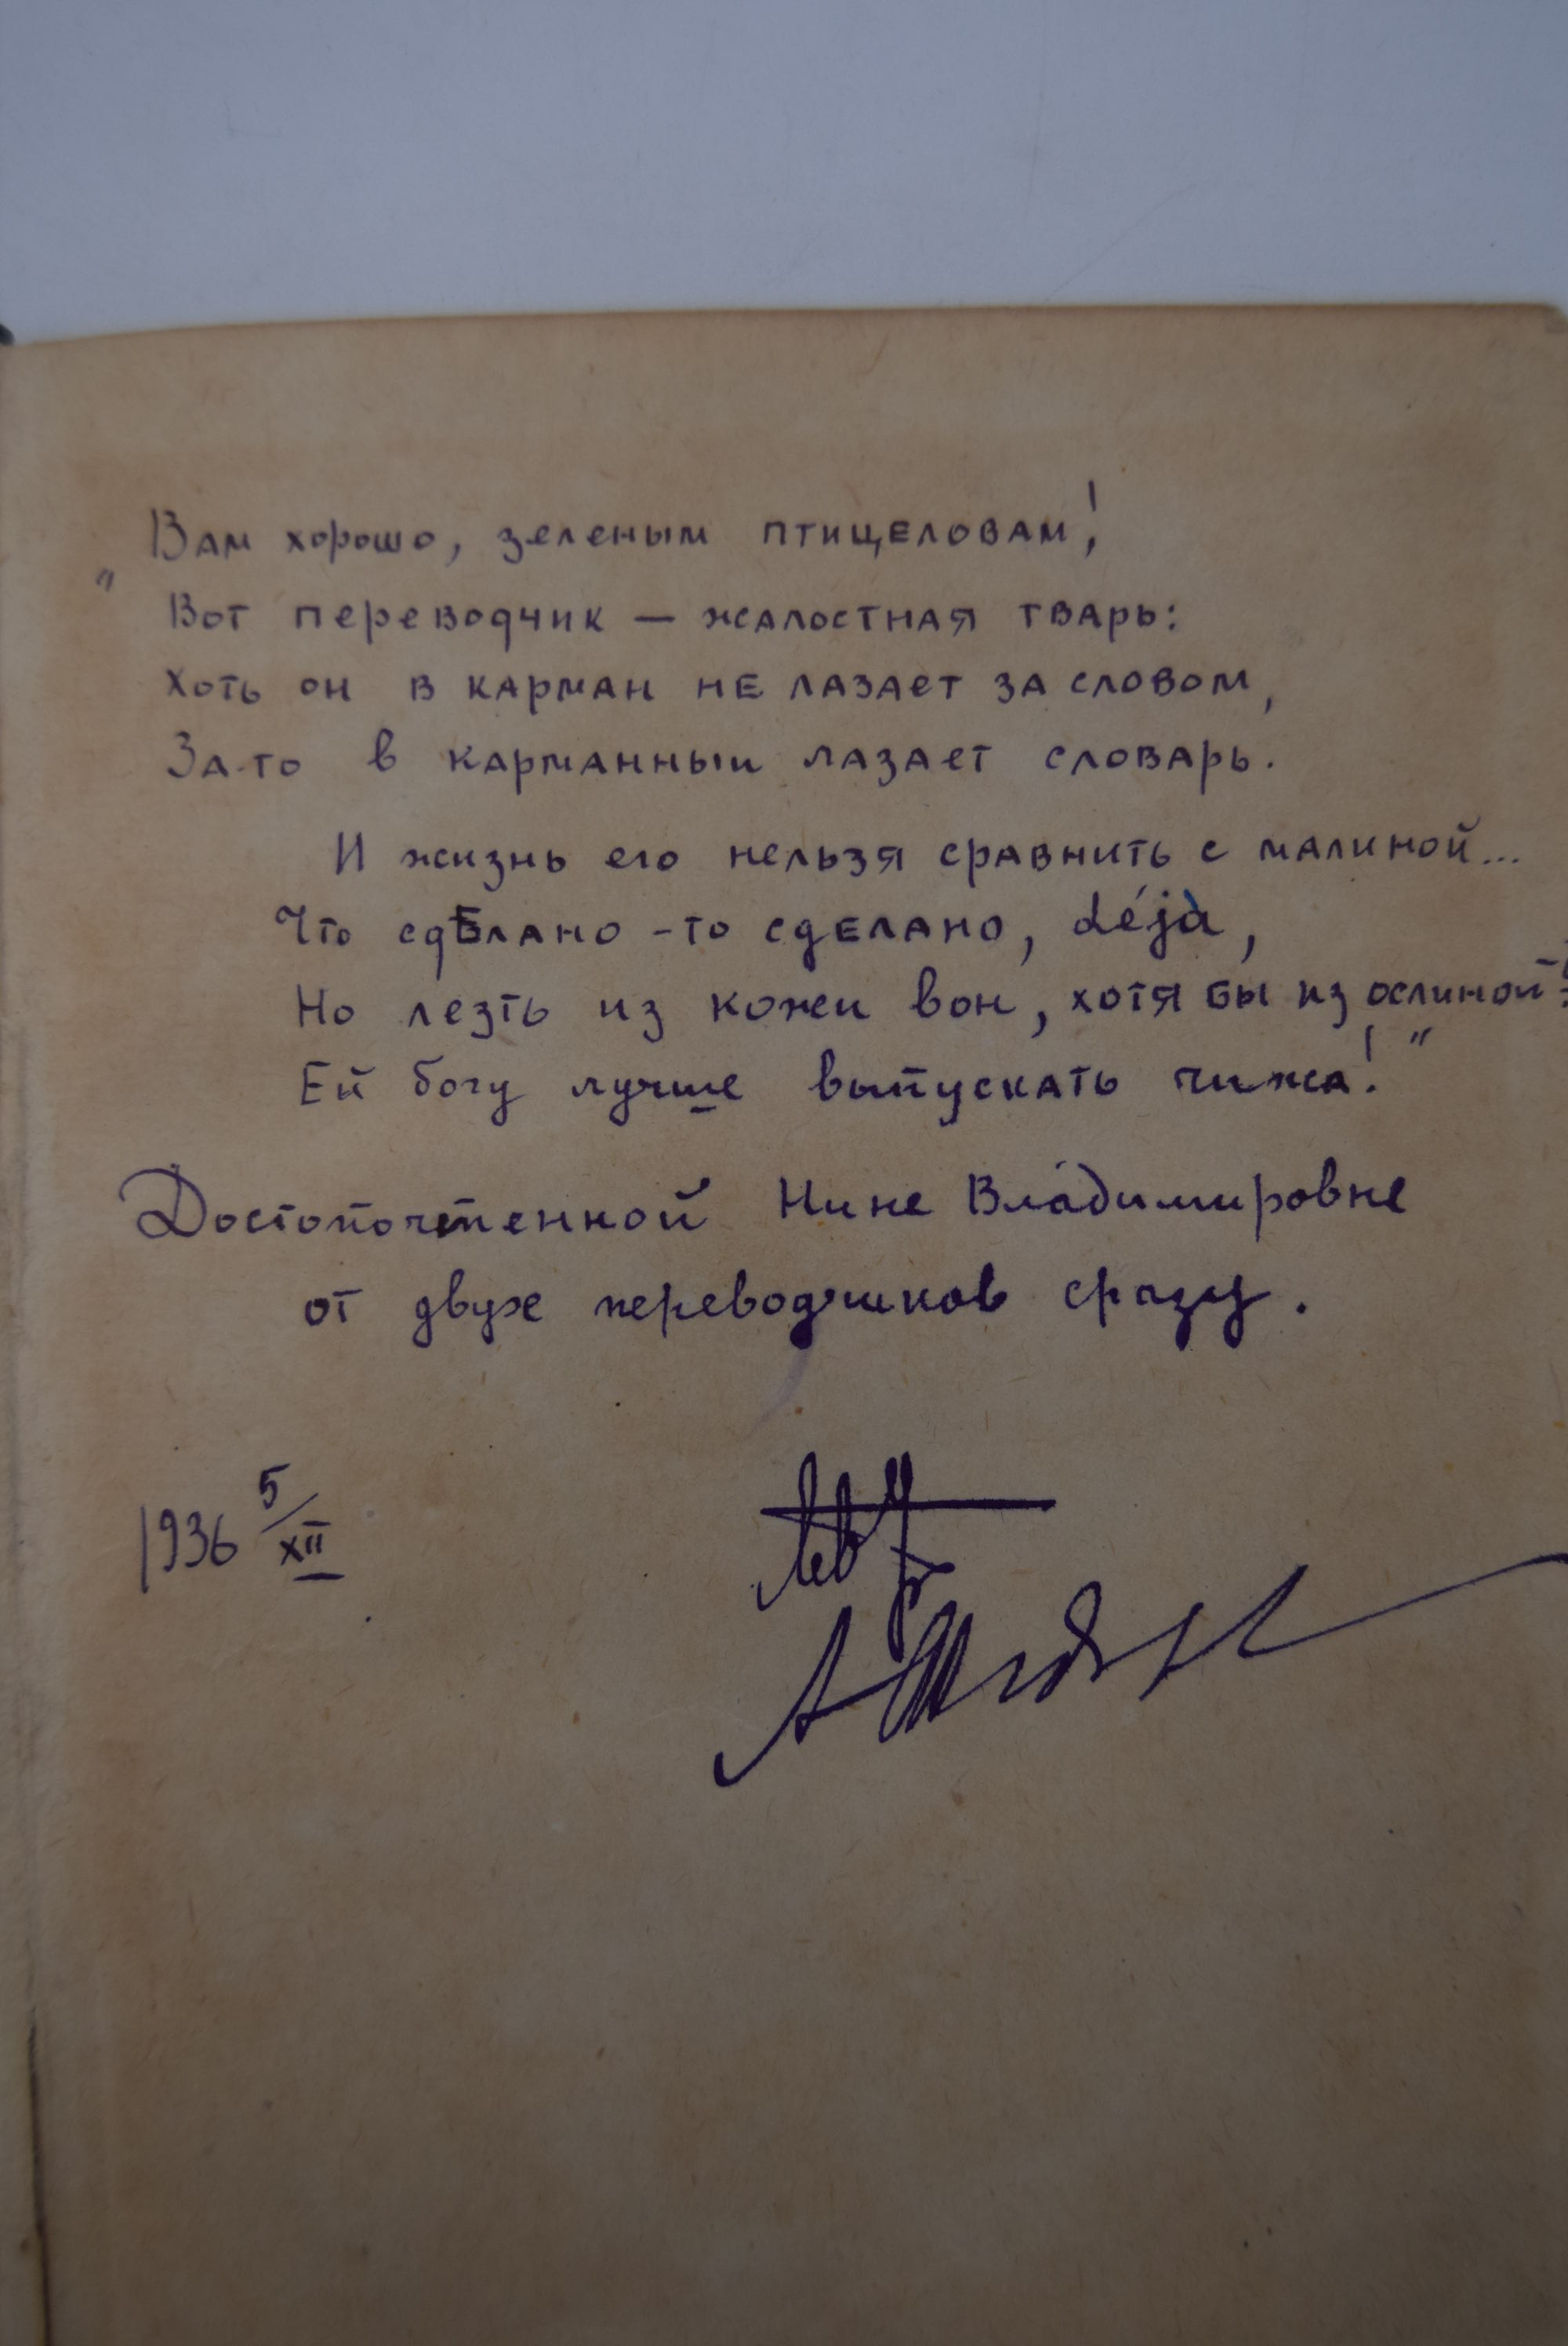 „Вам хорошо, зеленым птицеловам!
Вот переводчик — жалостная тварь:
Хоть он в карман не лазает за словом,
За-то в карманный лазает словарь.
И жизнь его нельзя сравнить с малиной...
Что сделано-то сделано, déjà,
Но лезть из кожи вон, хотя бы из ослиной -
Ей богу лучше выпускать чижа!"
Достопочтенной Нине Владимировне
от двух переводчиков сразу.
1936 5/XII
Лев